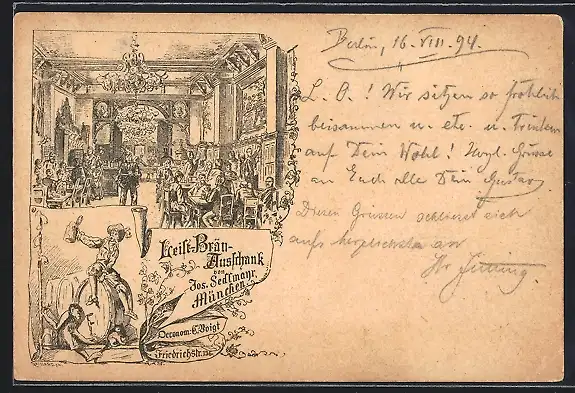 Berlin, 16. VIII. 94.
L. O.! Wir sitzen so fröhlich
beisammen u. etc. u. Trinken
auf Dein Wohl! Grüsse
an Euch alle Dein Gustav
Diesen Grüssen schliesst sich
aufs herzlichste an
Ihr
Leist-Bräu-
Ausschank
von
Jos. Sedlmayr,
München
Oeconom: C. Voigt
Friedrichstr.